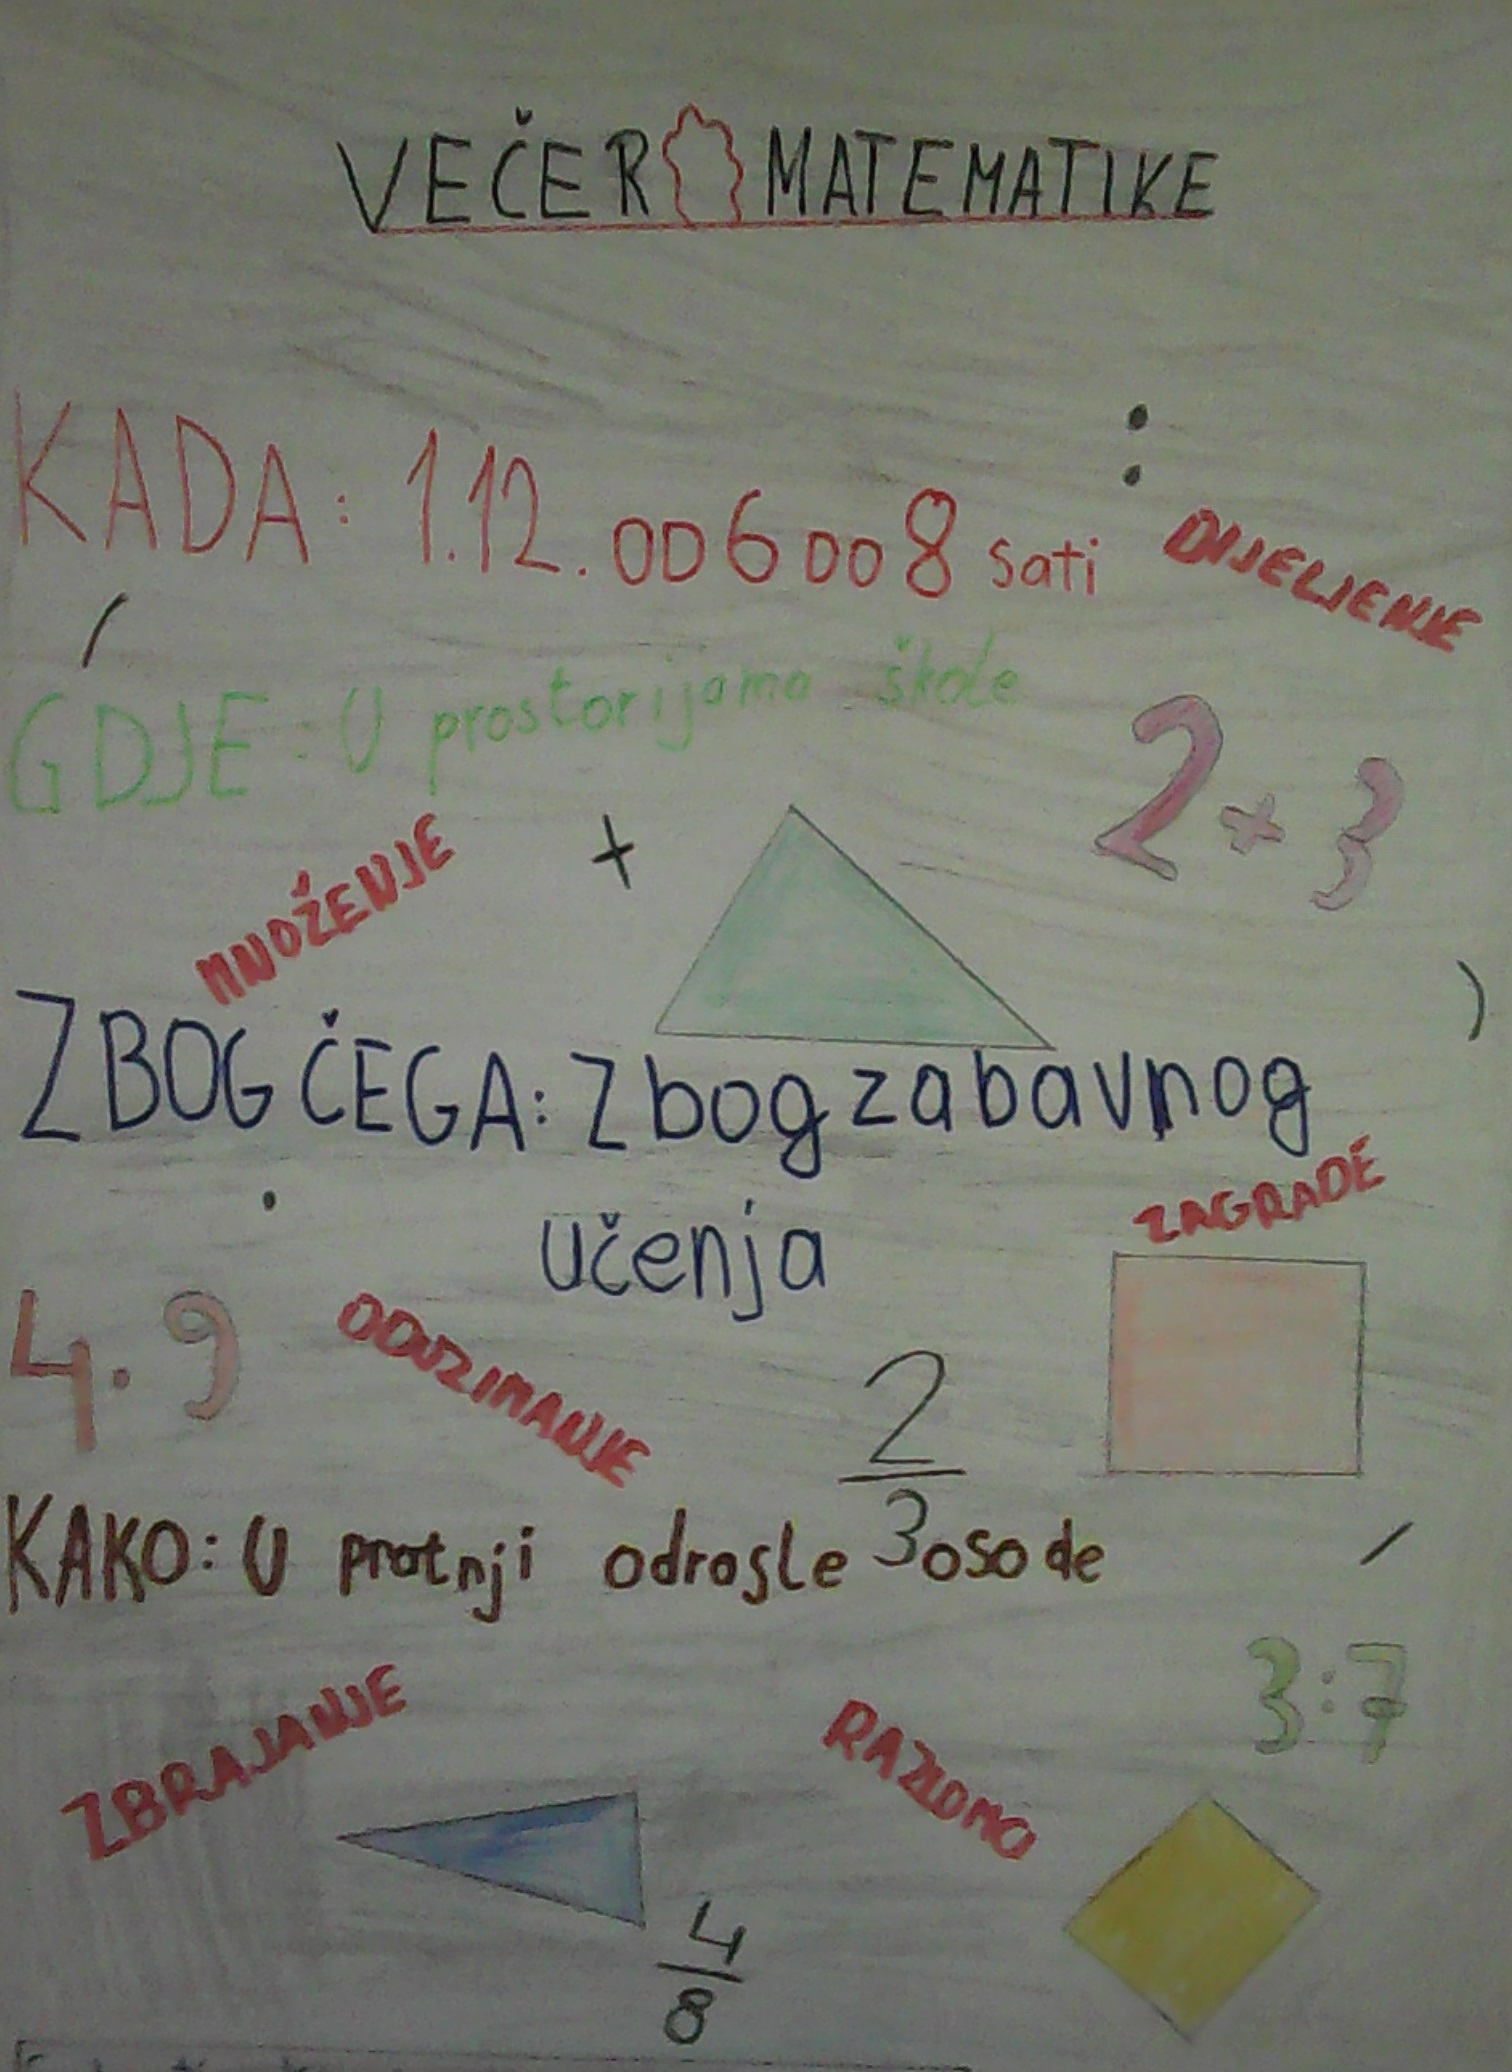 VEČER MATEMATIKE
:
KADA: 1.12. OD 6 DO 8 sati
DIJELJENJE
GDJE: U prostorijama škole
2+3
MNOŽENJE
+
)
ZBOG ČEGA: Zbog zabavnog
učenja
ZAGRADE
4·9
ODUZIMANJE
2
3
KAKO: U pratnji odrasle osobe
3:7
ZBRAJANJE
RAZLOMO
4
8